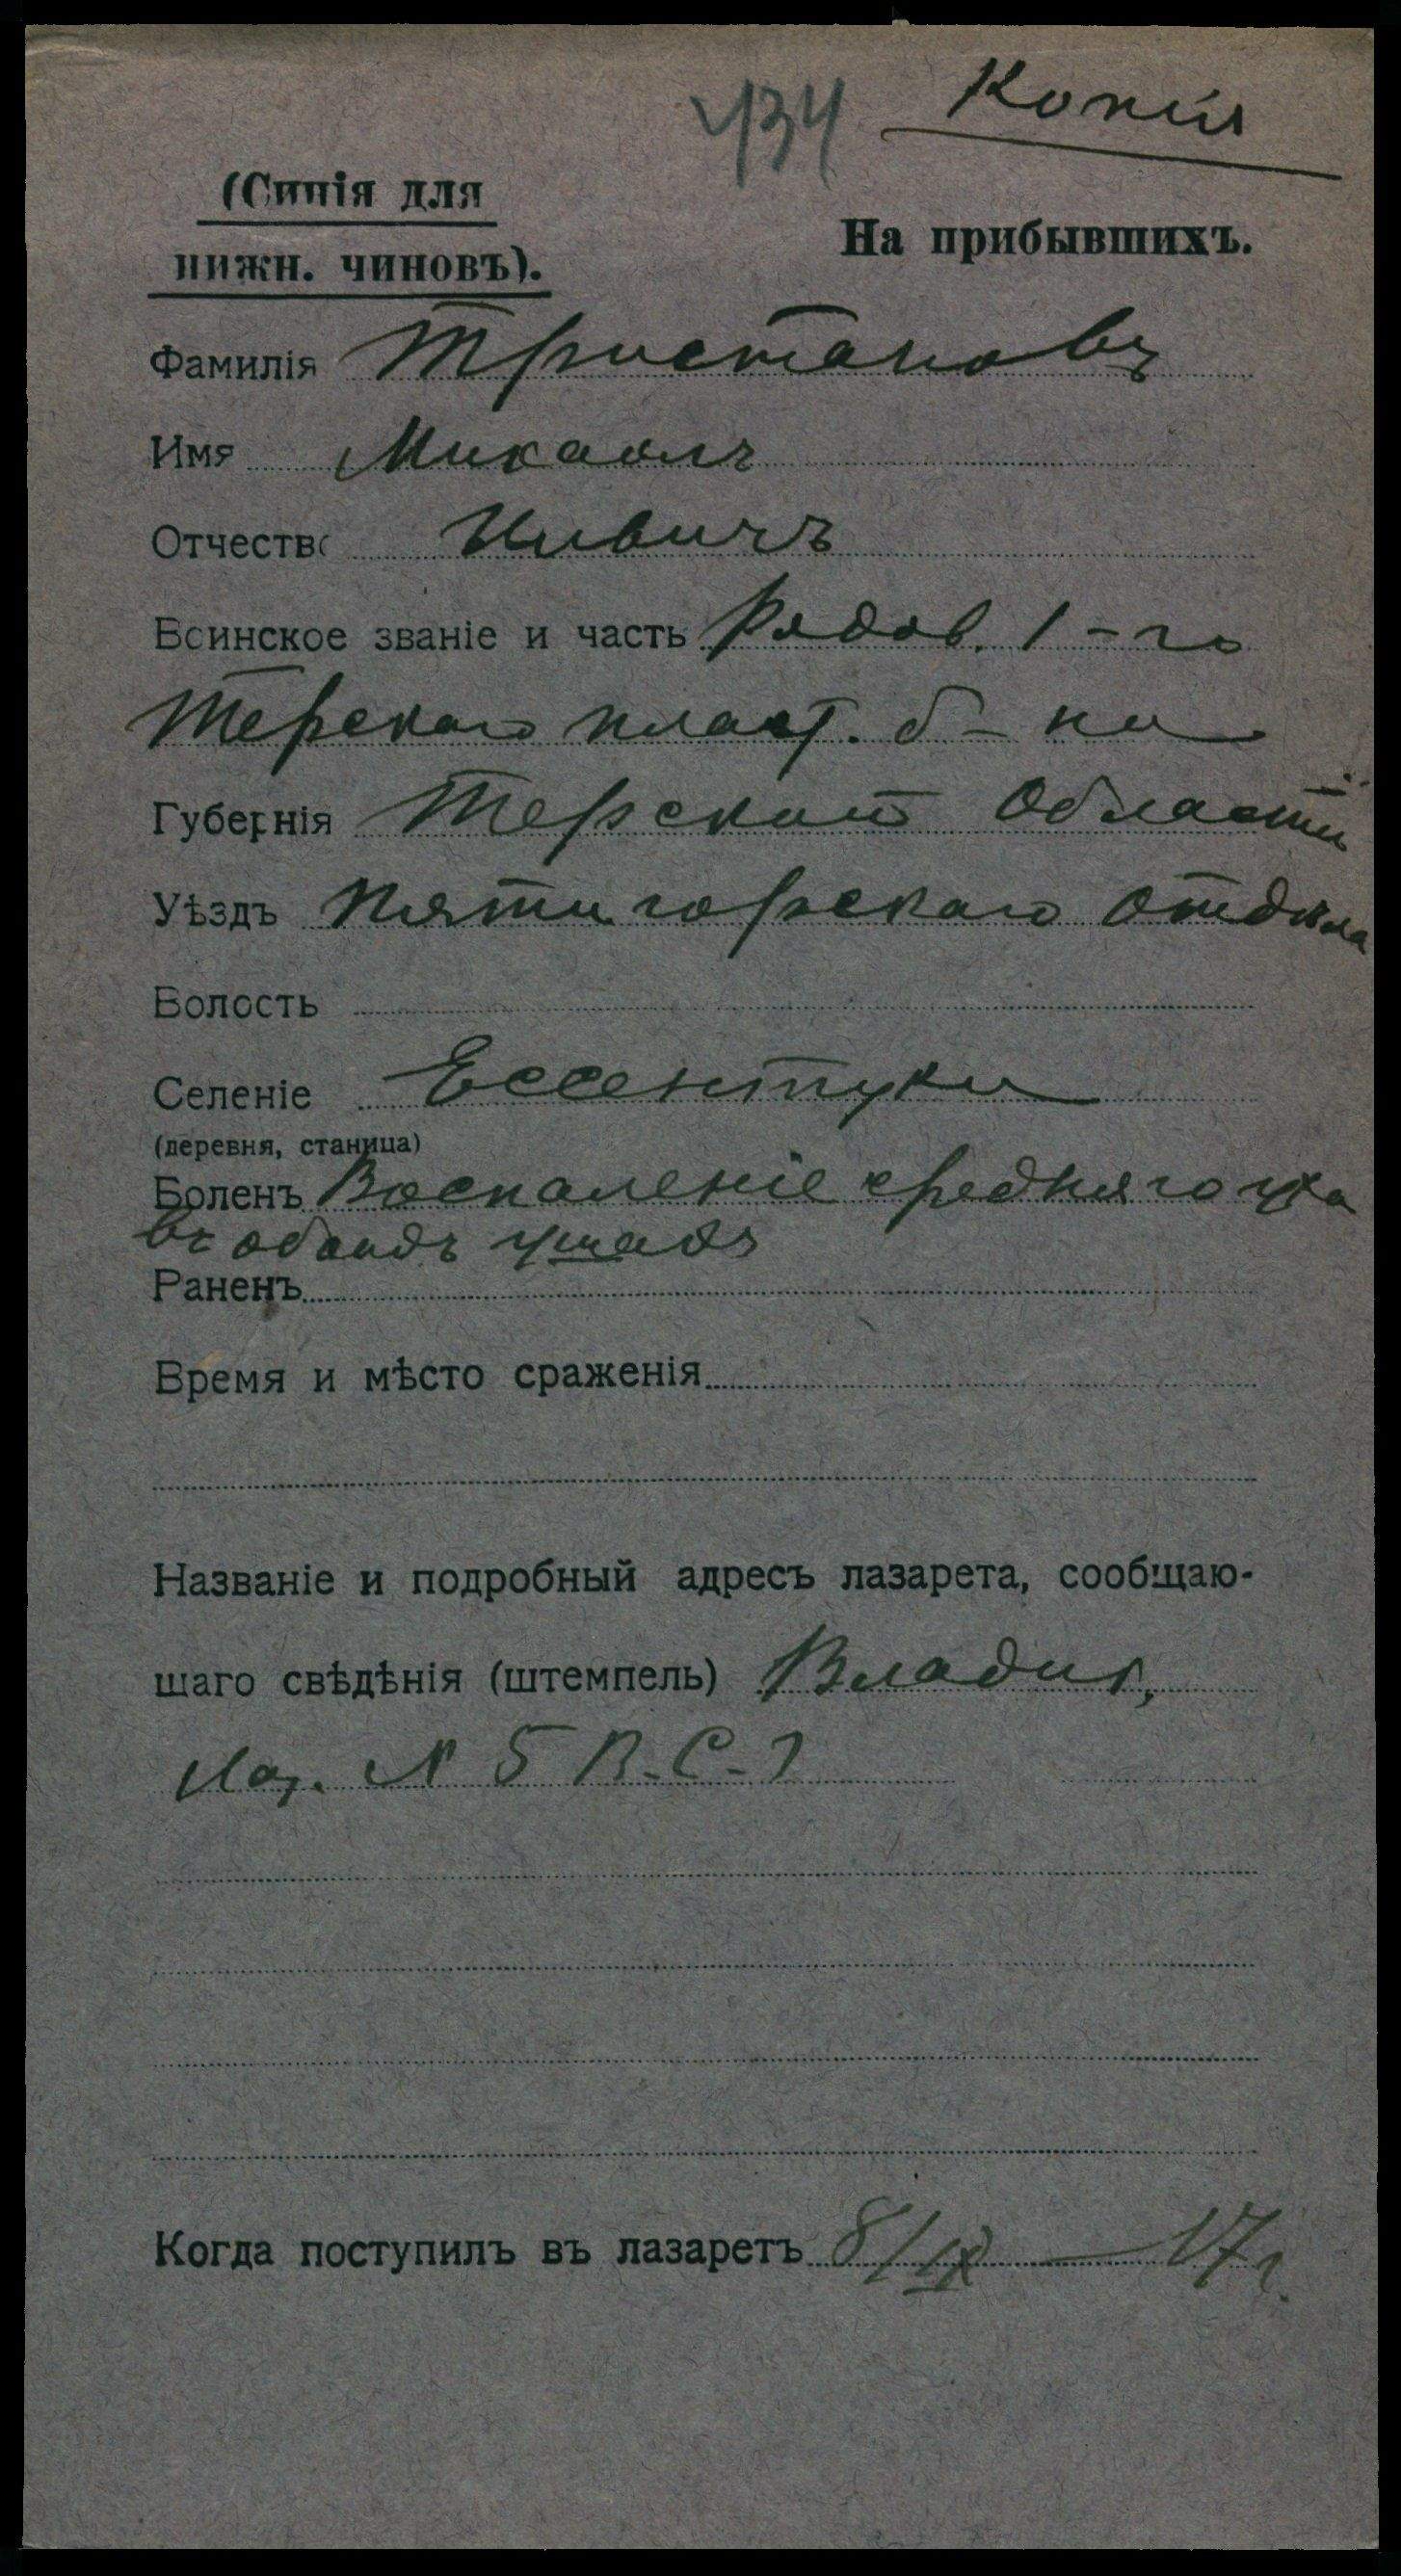 434 Копия
(Синія для
нижн. чиновъ).
На прибывшихъ.
Фамилія Тристановъ
Имя Микаэлъ
Отчество
Воинское званіе и часть Рядов. 1-го
Терскаго пласт. б-на
Губернія Терской Области
Уѣздъ Пятигорскаго отдѣла
Волость
Селеніе Ессентуки
(деревня, станица)
Боленъ Воспаленіе средняго уха
въ обоихъ ушахъ
Раненъ
Время и мѣсто сраженія
Названіе и подробный адресъ лазарета, сообщаю-
щаго свѣдѣнія (штемпель) Владик,
Лаз. № 5 В.С.Г
Когда поступилъ въ лазаретъ 8/IX — 17г.